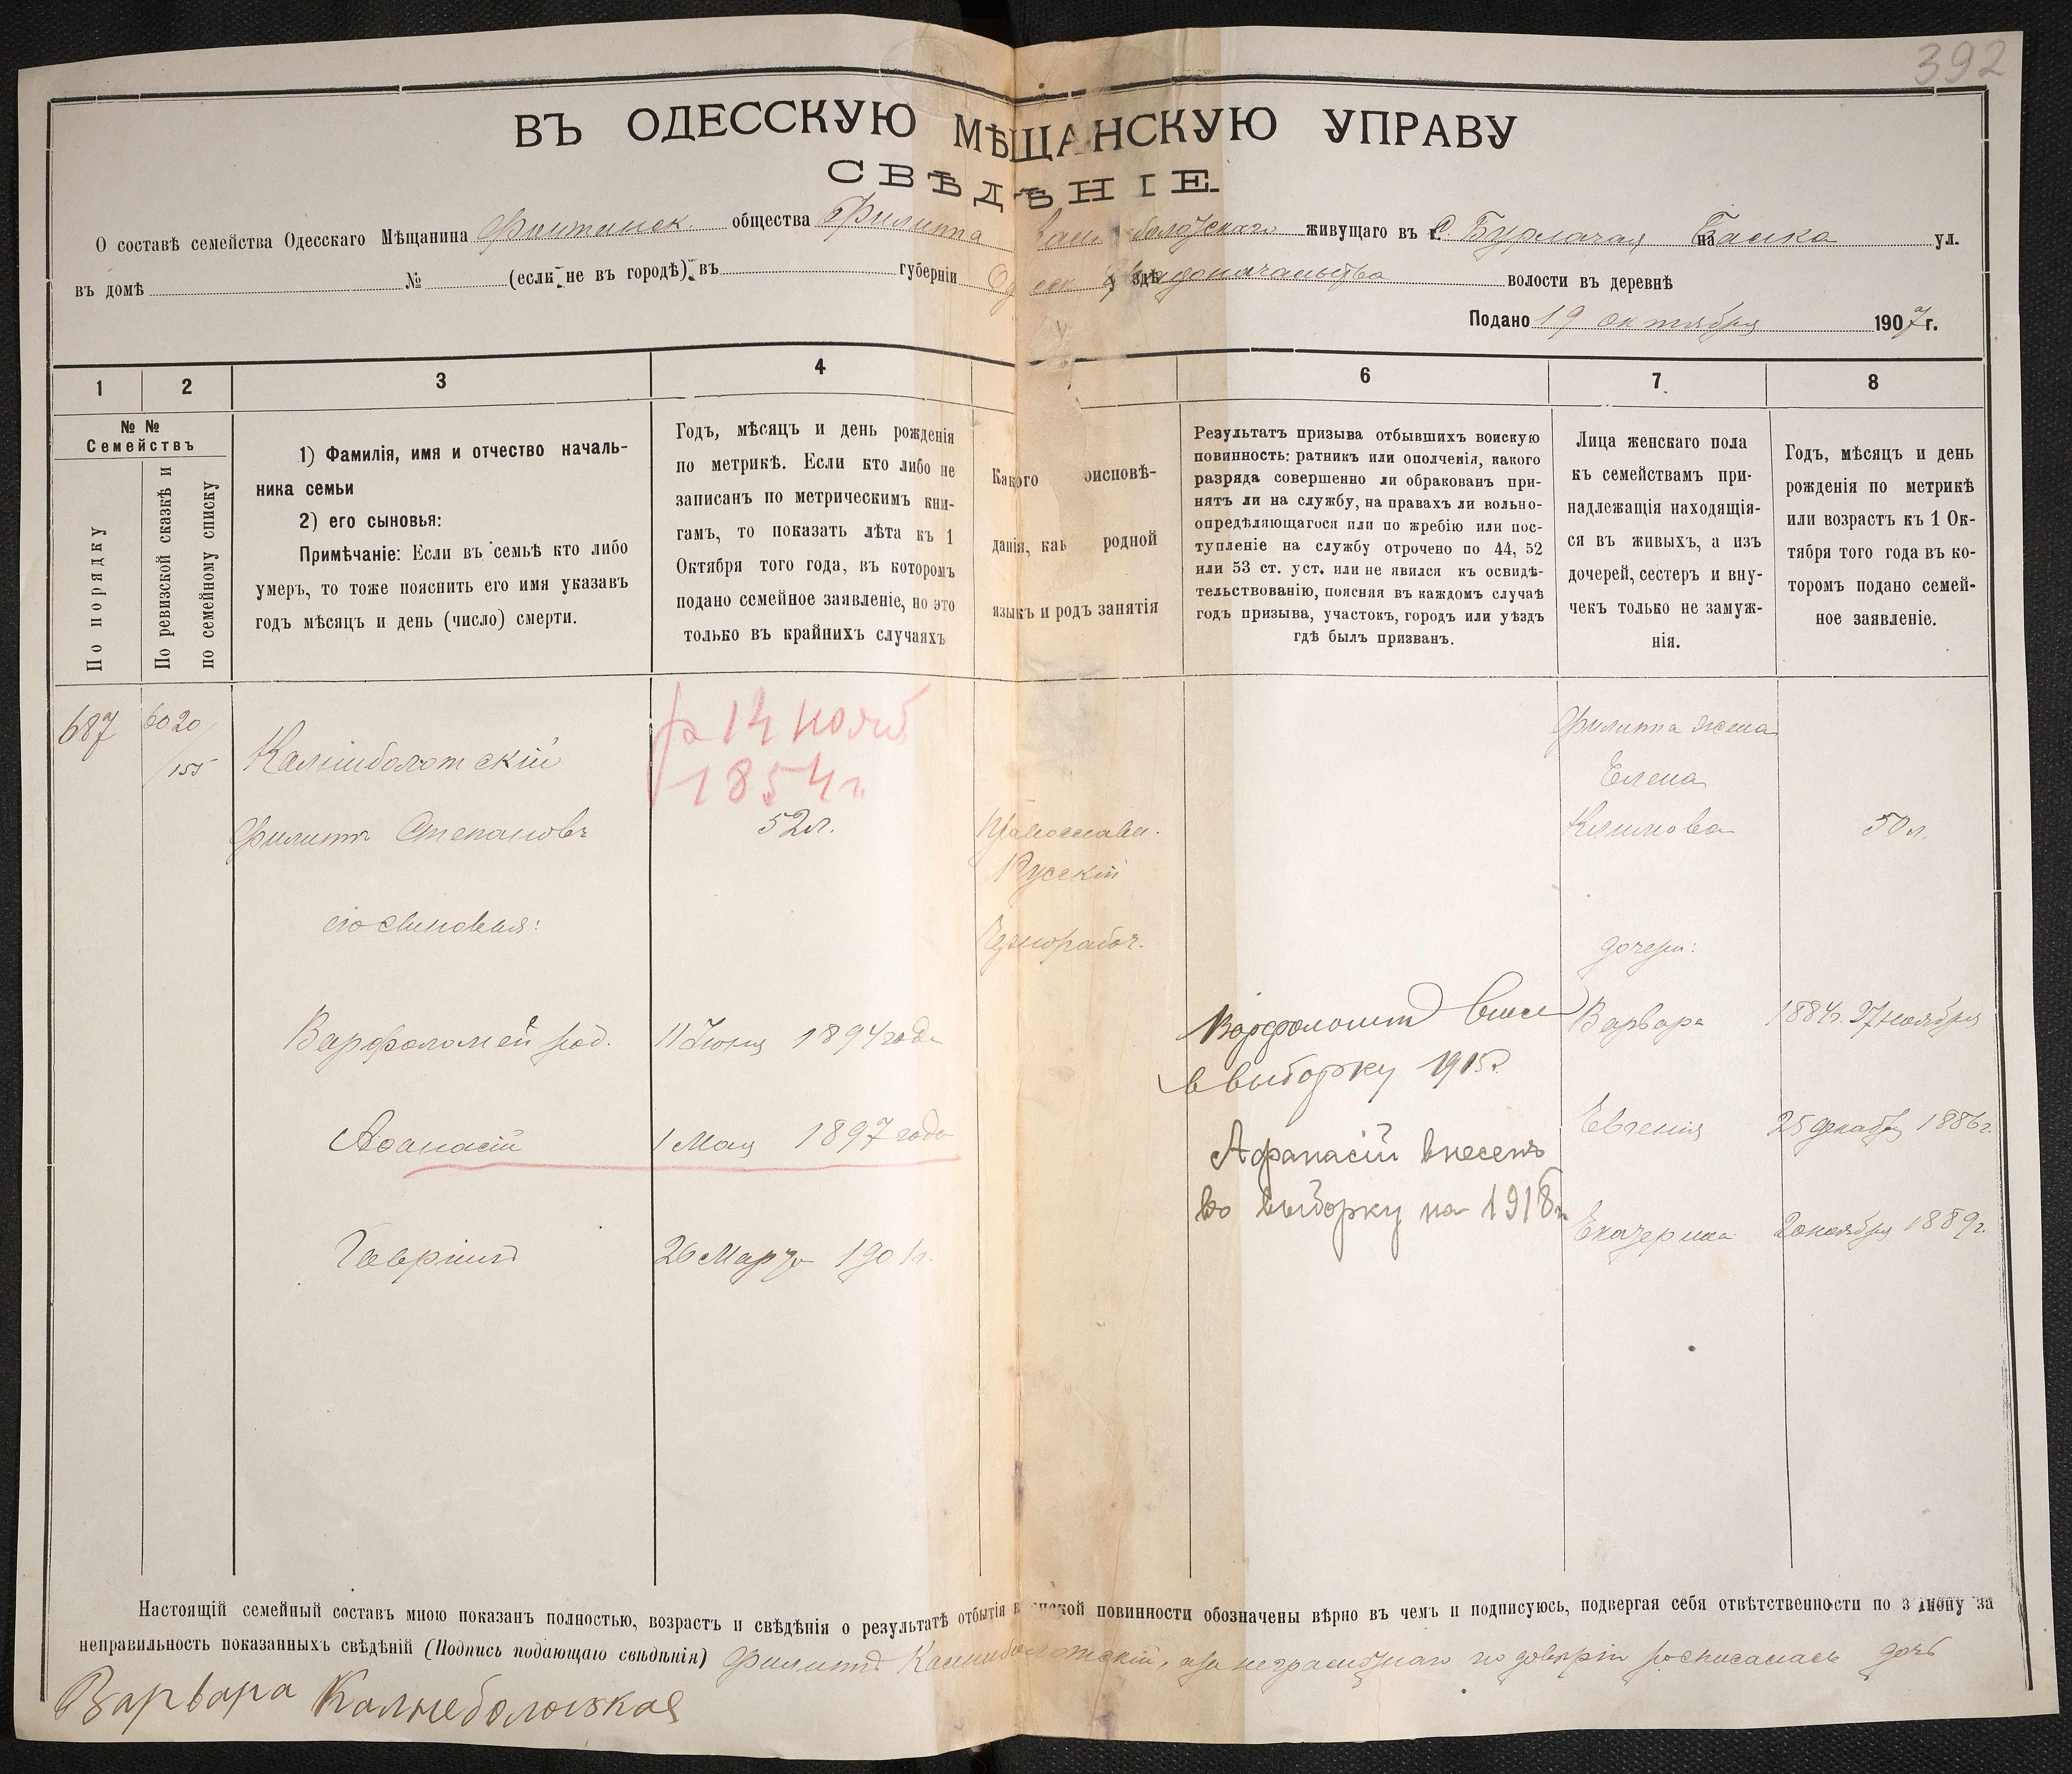 392
ВЪ ОДЕССКУЮ МѢЩАНСКУЮ УПРАВУ
СВѢДѢНІЕ
О составѣ семейства Одесскаго Мѣщанина Фонтанск. общества Филиппа болотскаго живущаго въ с. Бурлачая Балка ул.
въ домѣ № (если не въ городѣ) въ губерніи Градоначальства волости въ деревнѣ
Подано 19 октября 1907 г.
1 2 3 4 6 7 8
№ №
Семействъ
По порядку
По ревизской сказкѣ и
по семейному списку
1) Фамилія, имя и отчество началь-
ника семьи
2) его сыновья:
Примѣчаніе: Если въ семьѣ кто либо
умеръ, то тоже пояснить его имя указавъ
годъ мѣсяцъ и день (число) смерти.
Годъ, мѣсяцъ и день рожденія
по метрикѣ. Если кто либо не
записанъ по метрическимъ кни-
гамъ, то показать лѣта къ 1
Октября того года, въ которомъ
подано семейное заявленіе, но это
только въ крайнихъ случаяхъ
Какого оисповѣ-
данія, как родной
языкъ и родъ занятія
Результатъ призыва отбывшихъ воискую
повинность: ратникъ или ополченія, какого
разряда совершенно ли обракованъ при-
нятъ ли на службу, на правахъ ли вольно-
опредѣляющагося или по жребію или пос-
тупленіе на службу отрочено по 44, 52
или 53 ст. уст. или не явился къ освидѣ-
тельствованію, поясняя въ каждомъ случаѣ
годъ призыва, участокъ, городъ или уѣздъ
гдѣ былъ призванъ.
Лица женскаго пола
къ семействамъ при-
надлежащія находящія-
ся въ живыхъ, а изъ
дочерей, сестеръ и вну-
чекъ только не замуж-
нія.
Годъ, мѣсяцъ и день
рожденія по метрикѣ
или возрастъ къ 1 Ок-
тября того года въ ко-
торомъ подано семей-
ное заявленіе.
687 6020/155
Калниболотскій
р 14 нояб
1854 г.
Филиппъ Степановъ 52 л.
Православн.
Русскій
Чернорабоч.
Филиппа жена
Елена
Климова 50 л.
его сыновья:
дочери:
Варфоломей род. 11 Іюня 1894 года
Варфоломей внес
в выборку 1915 г.
Варвара 1884 г. 27 ноября
Афанасій 1 Мая 1897 года
Афанасій внесенъ
во выборку на 1918 г.
Евгенія 25 декабр 1886 г.
Гавріилъ 26 Марта 1901 г.
Екатерина 20 ноября 1889 г.
Настоящій семейный составъ мною показанъ полностью, возрастъ и свѣдѣнія о результатѣ отбытія повинности обозначены вѣрно въ чемъ и подписуюсь, подвергая себя отвѣтственности по закону за
неправильность показанныхъ свѣдѣній (Подпись подающаго свѣдѣнія) Филиппъ Калниболотскій, а за неграмотнаго по довѣрію росписалась дочь
Варвара Калнеболоцкая